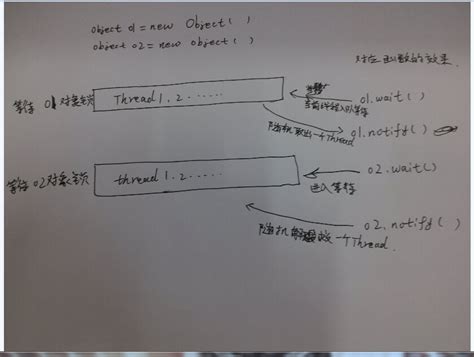 object o1 = new Object()
object o2 = new object()
对应函数的效果
等待 o1 对象锁
Thread 1. 2 ......
当前线程入队等待
o1.wait()
随机取出一个Thread
o1.notify()
等待 o2 对象锁
thread 1. 2 .....
o2.wait()
进入等待
o2.notify()
随机 放一个Thread.